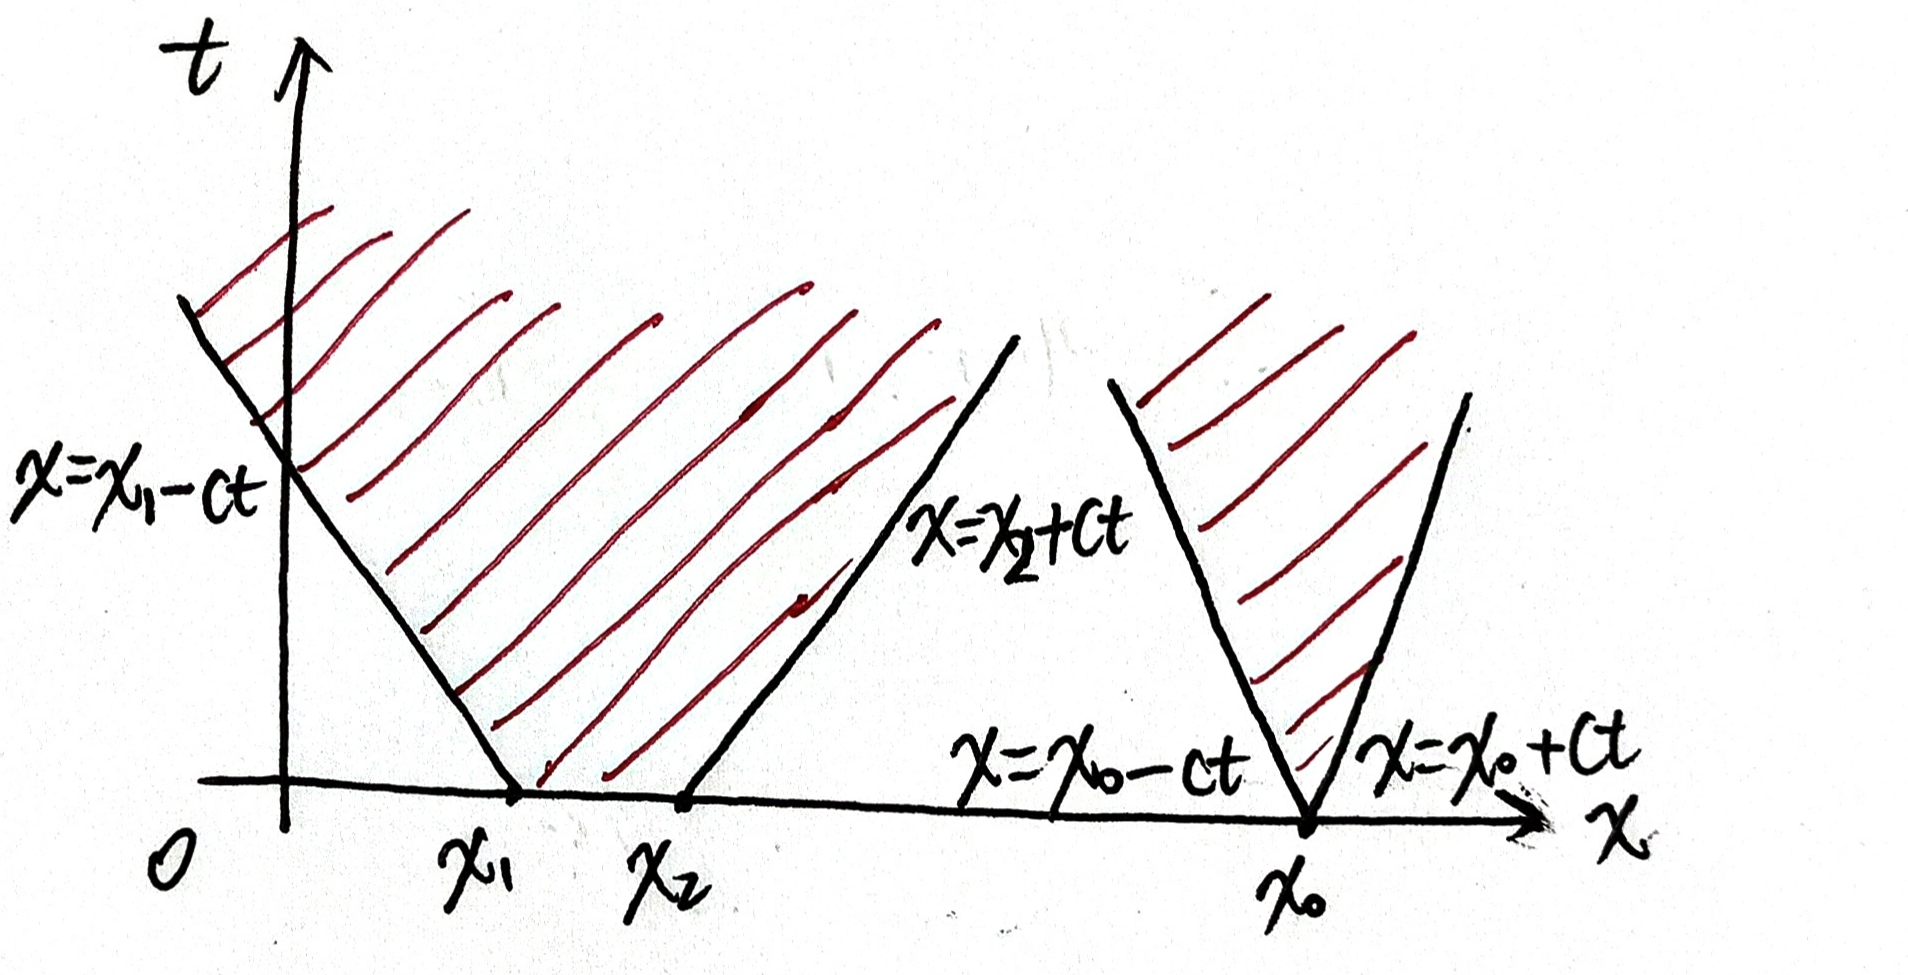 t
x=x₁-ct
x=x₂+ct
x=x₀-ct
x=x₀+ct
x
0
x₁
x₂
x₀